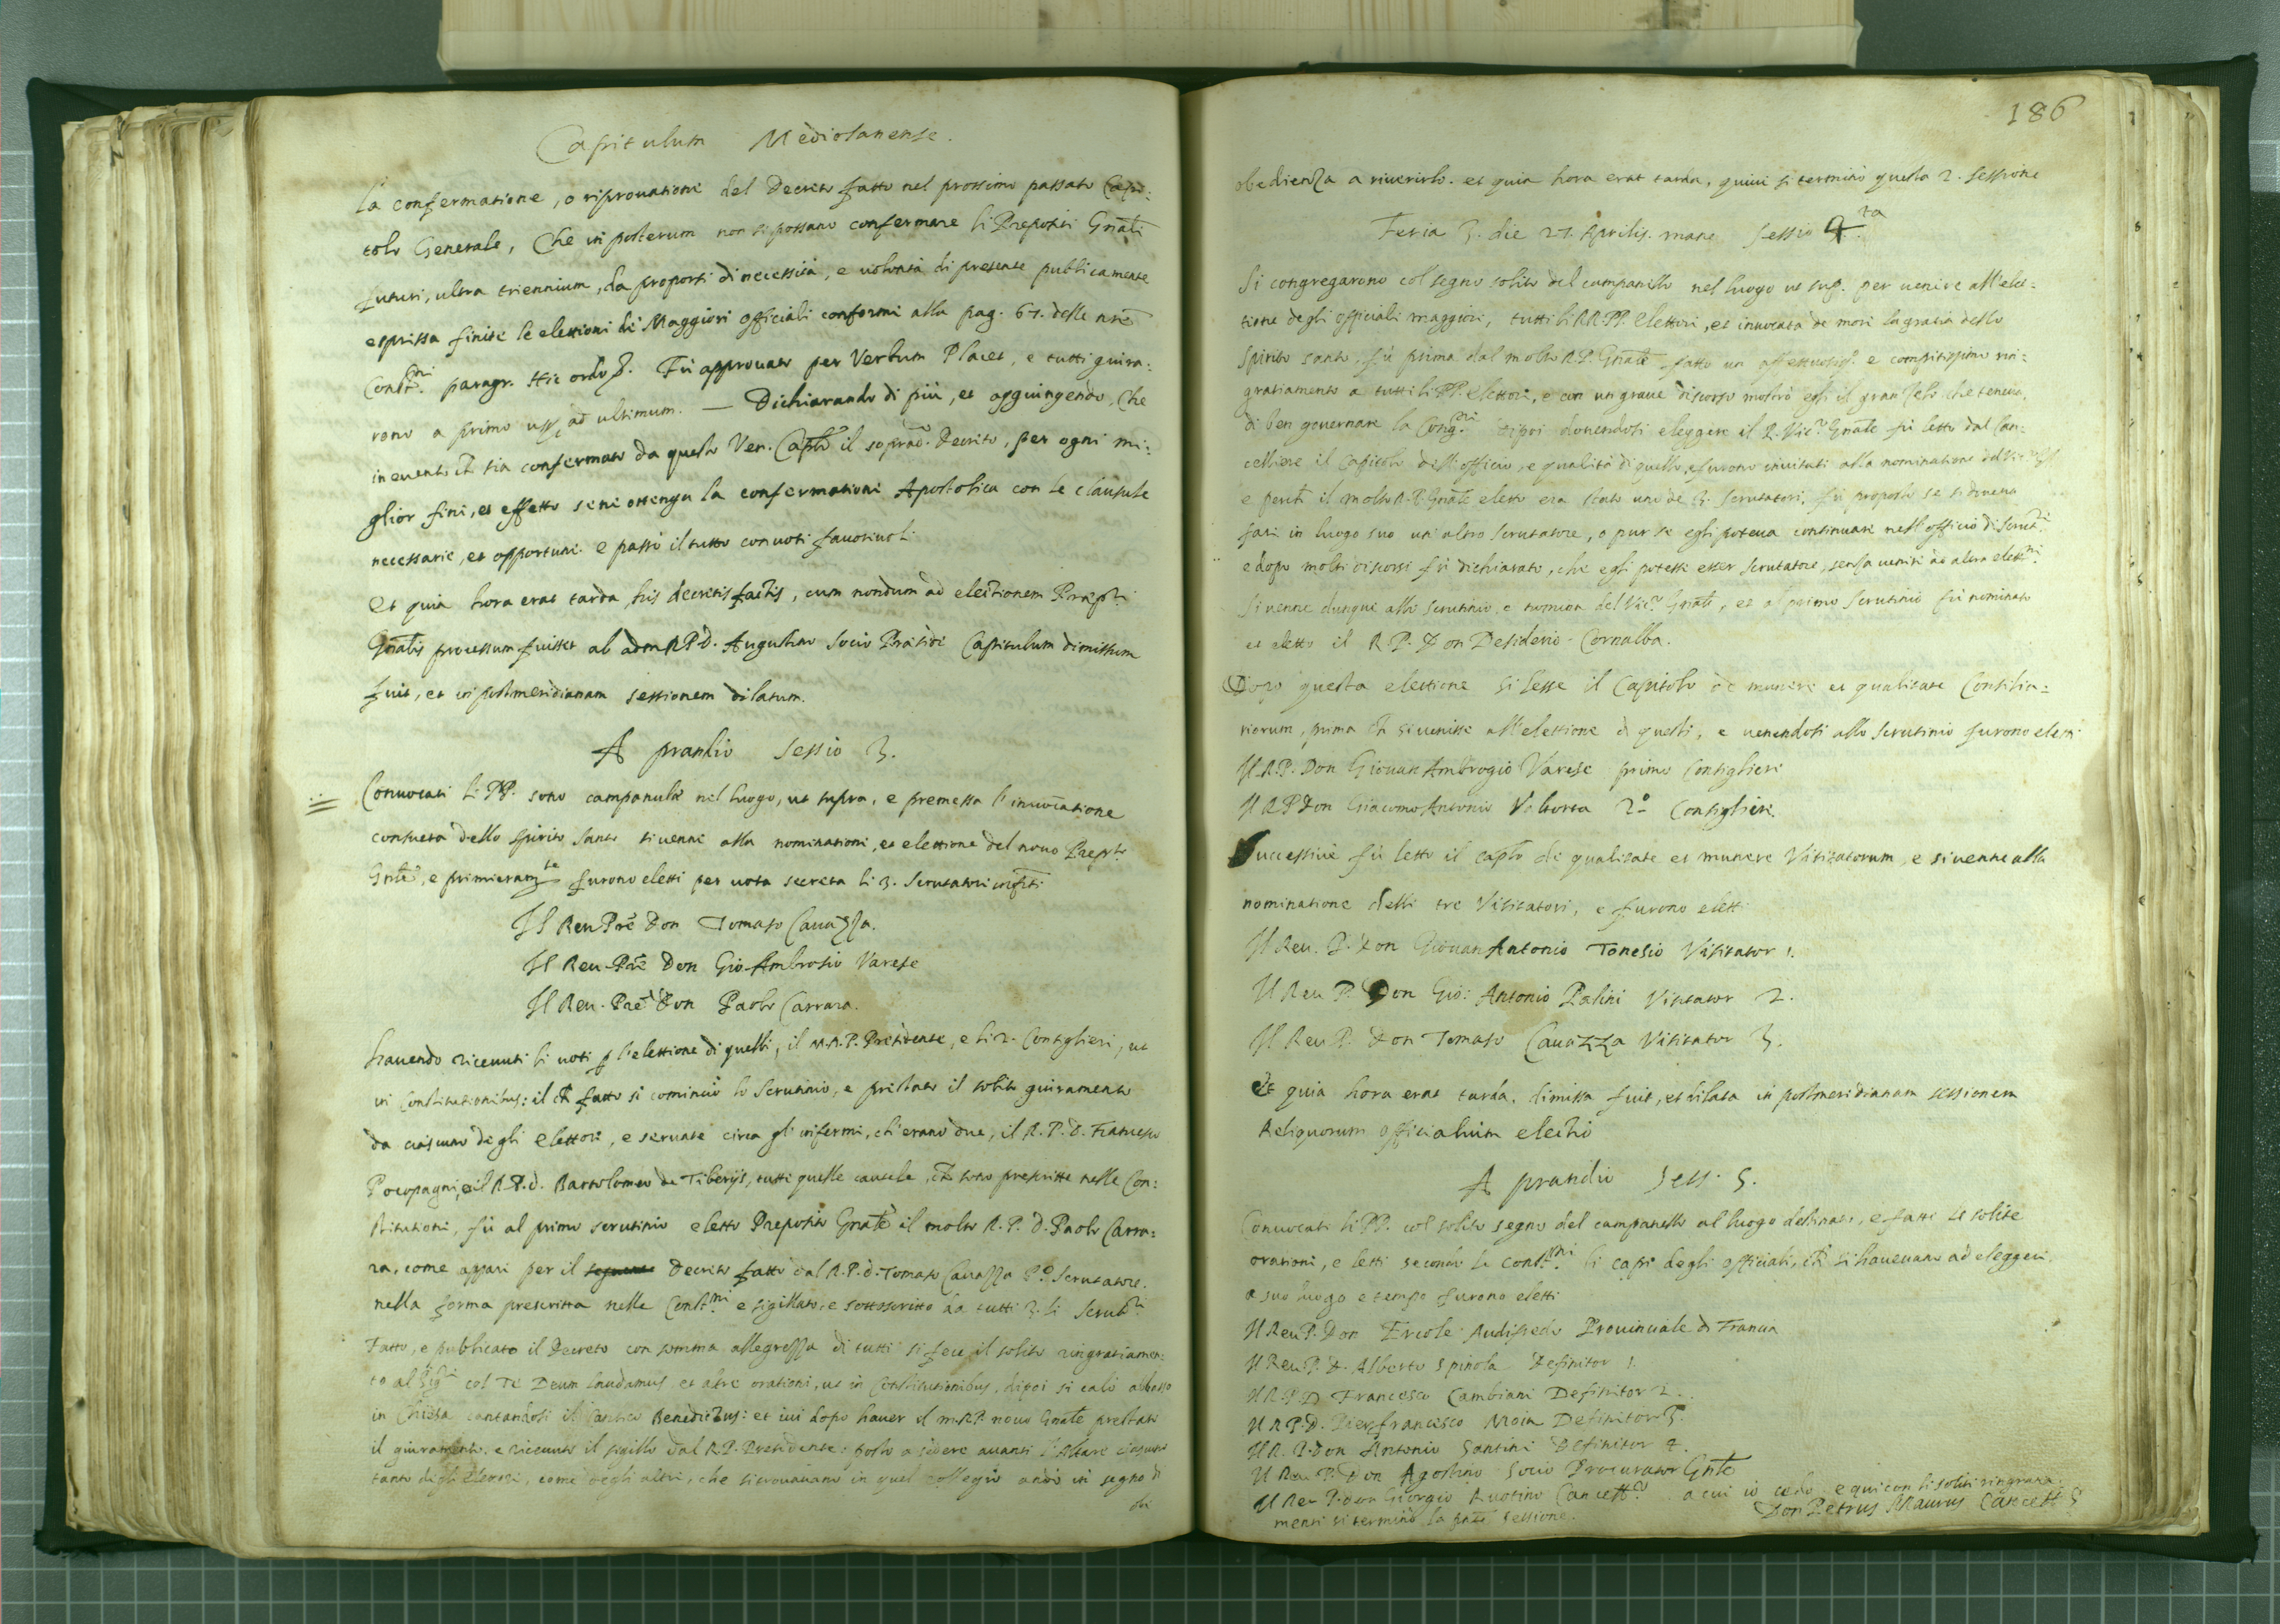 Capitulum Mediolanense.
La confermatione, o riprovatione del Decreto fatto nel prossimo passato Capi:
tolo Generale, Che in posterum non si possano confermare li Prepositi Gnāli
futuri, ultra triennium, da proporsi di necessità, e volontà di presente publicamente
espressa finite le elettioni de Maggiori officiali conforme alla pag. 67. delle nrē
Constni. paragr. Hic ordo. Fù approvato per Verbum Placet, e tutti giura:
rono a primo usq ad ultimum. — Dichiarando di più, et aggiungendo, Che
in evento ch sia confermato da questo Ven. Caplo il soprad. Decreto, per ogni mi:
glior fine, et effetto se ne ottenga la confermatione Apostolica con le clausule
necessarie, et opportune. e passò il tutto con voti favorevoli
Et quia hora erat tarda, his decretis factis, cum nondum ad electionem Præpti
Gnalis processum fuisset ab adm R.P.D. Augustino Socio Præside Capitulum dimissum
fuit, et in postmeridianam sessionem dilatum.
A prandio Sessio 3.
Convocati li PP. sono campanulæ nel luogo, ut supra, e premessa l'invocatione
consueta dello Spirito Santo si venne alla nominatione, et elettione del novo Prepto
Gnle, e primieramte furono eletti per vota secreta li 3. Scrutatori infrti
Il Reu. Pre Don Tomaso Cavazza.
Il Reu. Pre Don Gio. Ambrosio Varese
Il Reu. Pre Don Paolo Carrara.
havendo ricevuti li voti p l'elettione di quelli, il M.R.P. Presidente, e li 2. Consiglieri, ut
in Constitutionibus: il ch fatto si cominciò lo Scrutinio, e prestato il solito giuramento
da ciascuno degli elettori, e servate circa gl'infermi, ch'erano due, il R.P.D. Francesco
Pocopagni, e il R.P.d. Bartolomeo de Tiberijs, tutte quelle cautele, ch sono prescritte nelle Con:
stitutioni, fù al primo scrutinio eletto Preposito Gnale il molto R.P.D. Paolo Carra:
ra, come appare per il Decreto fatto dal R.P.d. Tomaso Cavazza Po. Scrutatore.
nella forma prescritta nelle Constni. e sigillato, e sottoscritto da tutti 3. li Scruti.
Fatto, e publicato il Decreto con somma allegrezza di tutti si fece il solito ringratiamen:
to al Sigr. col Te Deum laudamus, et altre orationi, ut in Constitutionibus, dipoi si calò abbasso
in Chiesa cantandosi il Cantico Benedictus: et ivi dopo haver il m.R.P. novo Gnale prestato
il giuramento, e ricevuto il sigillo dal R.P. Presidente: posto a sedere avanti l'Altare ciascuno
tanto degli Elettori, come degli altri, che si trovavano in quel collegio andò in segno di
186
obedienza a riverirlo. et quia hora erat tarda, quivi si terminò questa 2. sessione
Feria 3. die 27. Aprilis. mane Sessio 4.ta
Si congregarono col segno solito del campanello nel luogo ut sup. per venire all'elet:
tione degli officiali maggiori, tutti li RR.PP. Elettori, et invocata de more la gratia dello
Spirito santo, fù prima dal molto R.P. Gnale fatto un affettuosiss. e compitissimo rin:
gratiamento a tutti li PP. elettori, e con un grave discorso mostrò egli il gran zelo che teneva,
di ben governare la Congni. dipoi dovendosi eleggere il R. Vico. Gnale fù letto dal Can:
celliere il Capitolo dell'officio, e qualità di quello, e furono invitati alla nominatione del
e perch il molto R.P. Gnale eletto era stato uno de 3. scrutatori, fù proposto se si doveva
fare in luogo suo un'altro scrutatore, o pur se egli poteva continuare nell'officio di Scrut.
e dopo molti discorsi fù dichiarato, che egli potesse esser Scrutatore, senza venire ad altra elettni.
Si venne dunque allo scrutinio, e nomina del Vico. Gnale, et al primo scrutinio fù nominato
et eletto il R.P. Don Desiderio Cornalba.
Dopo questa elettione si lesse il Capitolo de munere et qualitate Consilia:
riorum, prima ch si venisse all'elettione di questi, e venendosi allo scrutinio furono eletti
Il R.P. Don Giovan Ambrogio Varese primo Consigliere
Il R.P. Don Giacomo Antonio Valtorta 2o Consigliere.
Successive fù letto il caplo de qualitate et munere Visitatorum, e si venne alla
nominatione delli tre Visitatori, e furono eletti
Il Reu. P. Don Giovan Antonio Tonesio Visitator 1.
Il Reu P. Don Gio: Antonio Palini Visitator 2.
Il Reu P. Don Tomaso Cavazza Visitator 3.
Et quia hora erat tarda, dimissa fuit, et dilata in postmeridianam sessionem
Reliquorum officialium electio
A prandio Sess. 5.
Convocati li PP. col solito segno del campanello al luogo destinato, e fatte le solite
orationi, e letti secondo le Constni. li capi degli officiali, ch si havevano ad eleggere
a suo luogo e tempo furono eletti
Il Reu P. Don Ercole Audifredo Provinciale di Francia
Il Reu P. D. Alberto Spinola Definitor 1.
Il R.P.D. Francesco Cambiani Definitor 2.
Il R.P.D. Pierfrancesco Moia Definitor 3.
Il R.P. Don Antonio Santini Definitor 4.
Il Reu P. Don Agostino Socio Procurator Gnle
Il Reu P. Don Giorgio Cancello. a cui io cedo, e qui con li soliti ringratia:
menti si terminò la pnte sessione.
Don Petrus Maurus Cancell